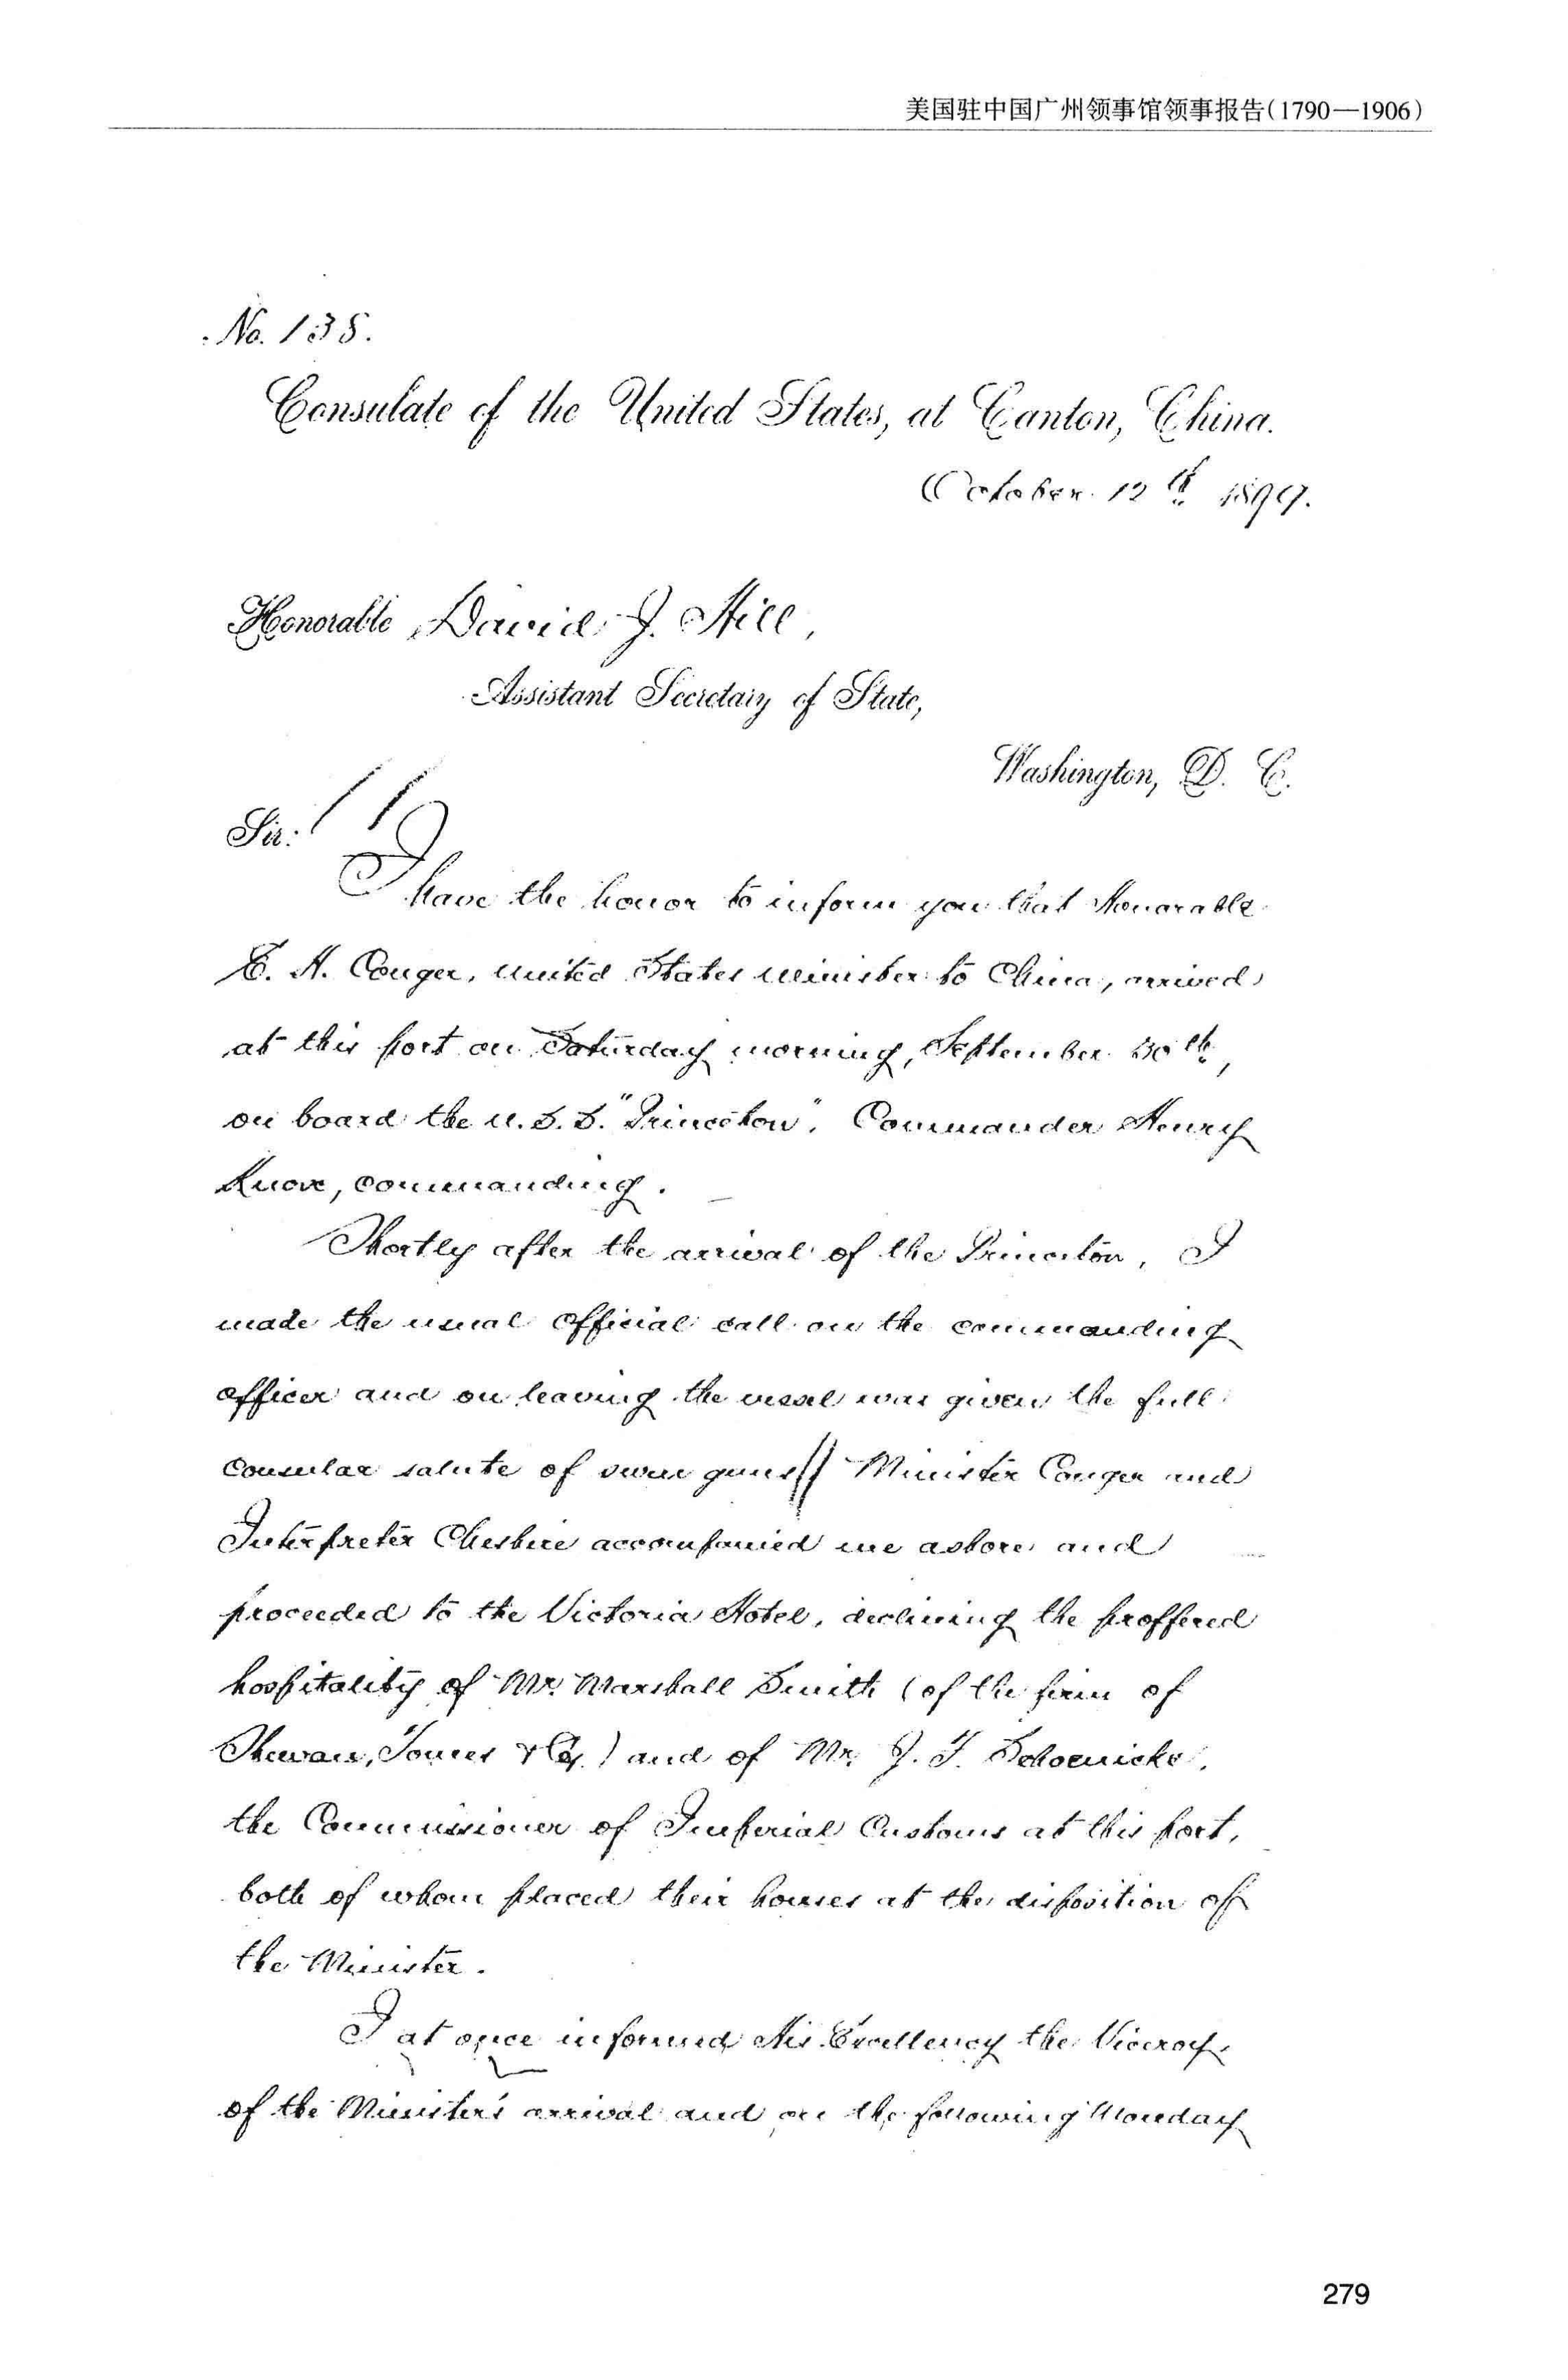 美国驻中国广州领事馆领事报告(1790—1906)
No. 138.
Consulate of the United States, at Canton, China.
October 12th 1899.
Honorable David J. Hill,
Assistant Secretary of State,
Washington, D. C.
Sir:
I have the honor to inform you that Honorable
E. H. Conger, United States Minister to China, arrived
at this port on Saturday morning, September 30th,
on board the U. S. S. "Princeton", Commander Henry
Knox, commanding.
Shortly after the arrival of the Princeton, I
made the usual official call on the commanding
officer and on leaving the vessel was given the full
Consular salute of seven guns // Minister Conger and
Interpreter Cheshire accompanied me ashore and
proceeded to the Victoria Hotel, declining the proffered
hospitality of Mr. Marshall Smith (of the firm of
Shewan, Tomes & Co.) and of Mr. J. F. Schoenicke,
the Commissioner of Imperial Customs at this port,
both of whom placed their houses at the disposition of
the Minister.
I at once informed His Excellency the Viceroy
of the Minister's arrival and on the following Monday
279